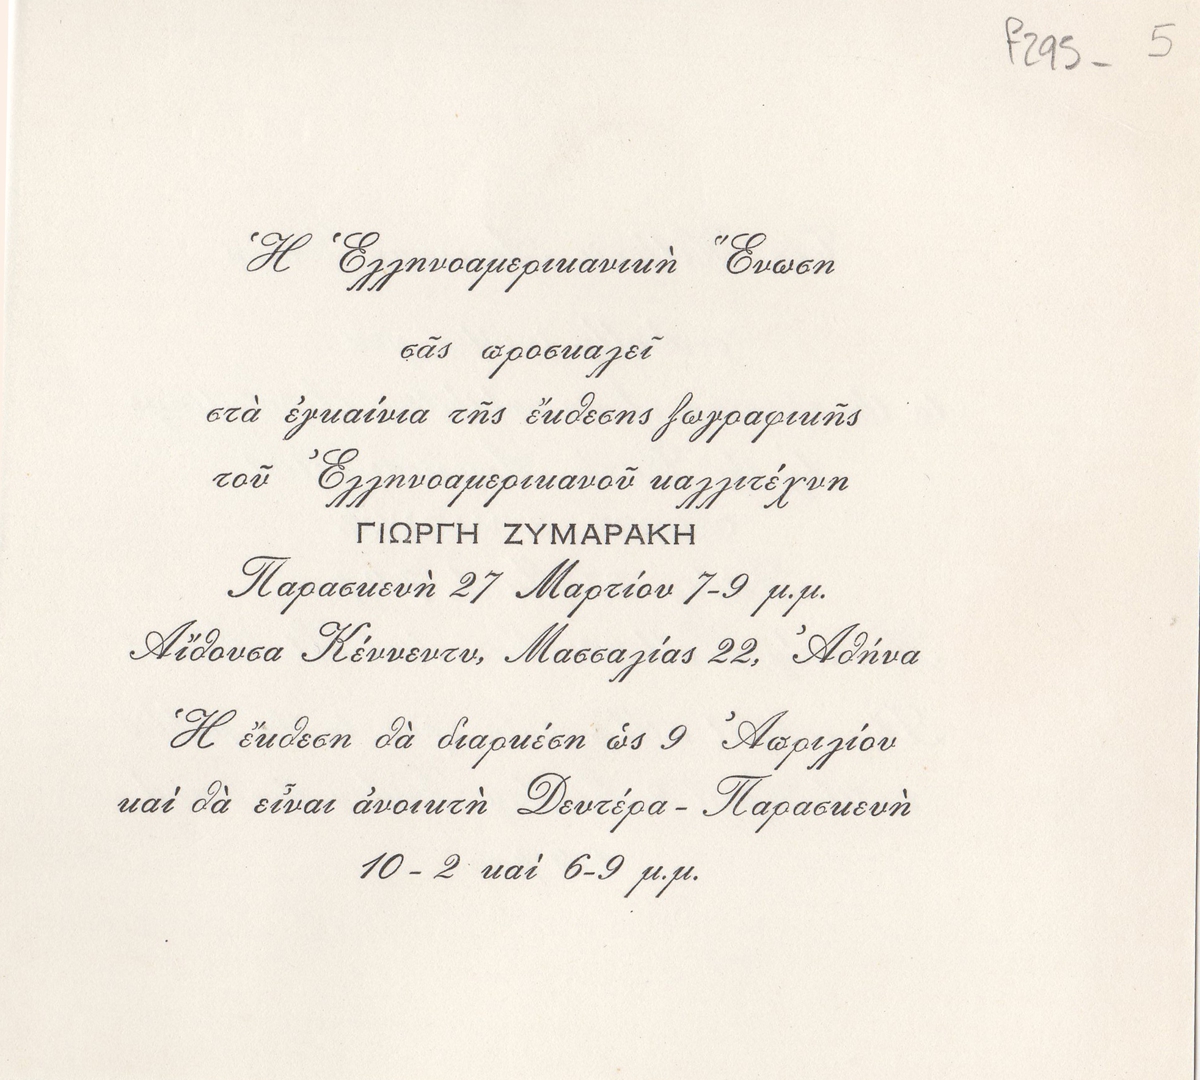 F295- 5
Ἡ Ἑλληνοαμερικανικὴ Ἕνωση
σᾶς προσκαλεῖ
στὰ ἐγκαίνια τῆς ἔκθεσης ζωγραφικῆς
τοῦ Ἐλληνοαμερικανοῦ καλλιτέχνη
ΓΙΩΡΓΗ ΖΥΜΑΡΑΚΗ
Παρασκευὴ 27 Μαρτίου 7-9 μ.μ.
Αἴθουσα Κέννεντυ, Μασσαλίας 22, Ἀθήνα
Ἡ ἔκθεση θὰ διαρκέση ὡς 9 Ἀπριλίου
καί θὰ εἶναι ἀνοικτὴ Δευτέρα - Παρασκευὴ
10 - 2 καί 6-9 μ.μ.